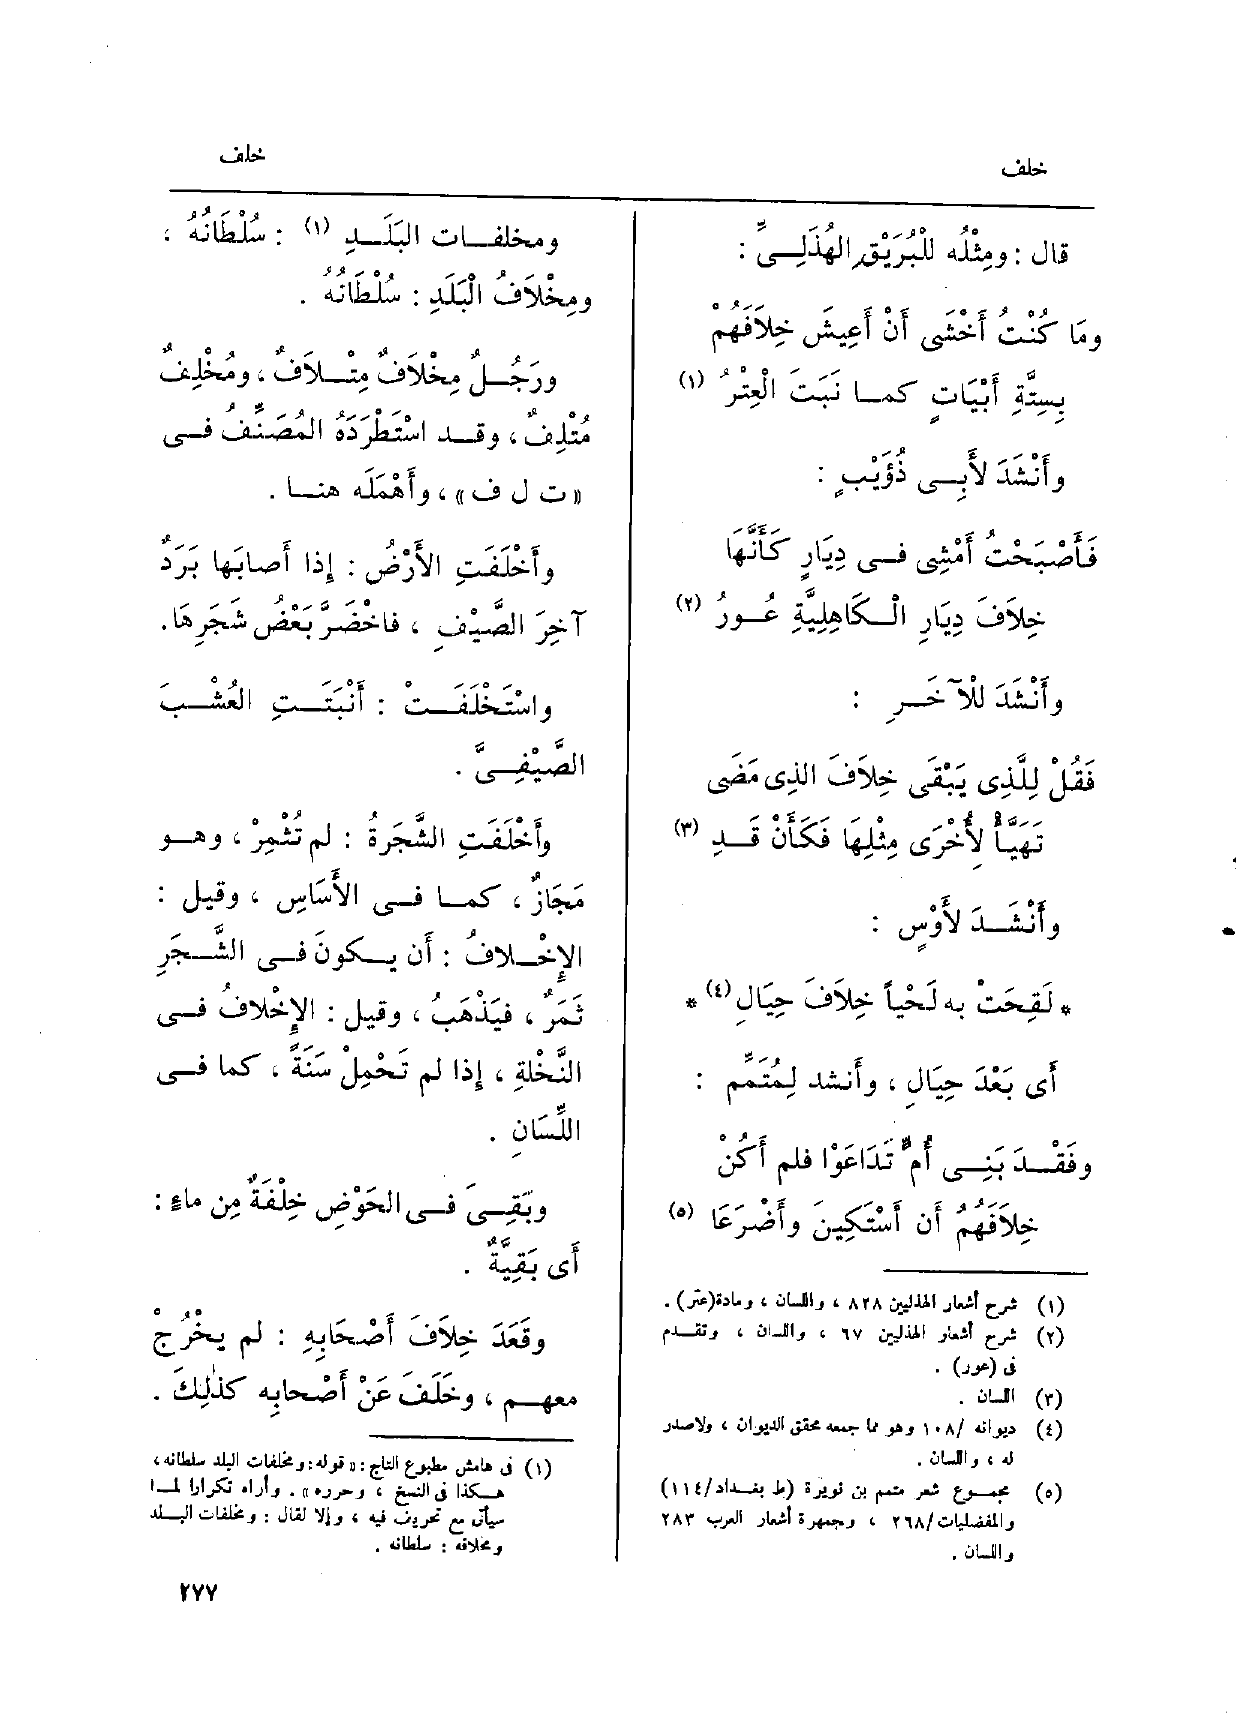 خلف
خلف
قال : ومِثْلُه للْبُرَيْقِ الهُذَلِىِّ :
ومَا كُنْتُ أَخْشَى أَنْ أَعِيشَ خِلَافَهُمْ
بِسِتَّةِ أَبْيَاتٍ كما نَبَتَ الْعِتْرُ (١)
وأَنْشَدَ لأَبِى ذُؤَيْبٍ :
فَأَصْبَحْتُ أَمْشِى فى دِيَارٍ كَأَنَّهَا
خِلَافَ دِيَارِ الْكَاهِلِيَّةِ عُورُ (٢)
وأَنْشَدَ للآخَرِ :
فَقُلْ لِلَّذِى يَبْقَى خِلَافَ الذِى مَضَى
تَهَيَّأْ لِأُخْرَى مِثْلِهَا فَكَأَنْ قَدِ (٣)
وأَنْشَدَ لأَوْسٍ :
* لَقِحَتْ به لَحْياً خِلَافَ حِيَالِ (٤) *
أَى بَعْدَ حِيَالِ ، وأنشد لِمُتَمِّم :
وفَقْدَ بَنِى أُمٍّ تَدَاعَوْا فلم أَكُنْ
خِلَافَهُمُ أَن أَسْتَكِينَ وأَضْرَعَا (٥)
(١) شرح أشعار الهذليين ٨٢٨ ، واللسان ، ومادة (عتر) .
(٢) شرح أشعار الهذليين ٦٧ ، واللسان ، وتقدم
فى (عور) .
(٣) اللسان .
(٤) ديوانه /١٠٨ وهو مما جمعه محقق الديوان ، ولاصدر
له ، واللسان .
(٥) مجموع شعر متمم بن نويرة (ط بغداد/١١٤)
والمفضليات/٢٦٨ ، وجمهرة أشعار العرب ٢٨٣
واللسان .
ومخلفات البَلَدِ (١) : سُلْطَانُهُ ،
ومِخْلَافُ الْبَلَدِ : سُلْطَانُهُ .
ورَجُلٌ مِخْلَافٌ مِتْلافٌ ، ومُخْلِفٌ
مُتْلِفٌ ، وقد اسْتَطْرَدَهُ المُصَنِّفُ فى
« ت ل ف » ، وأَهْمَلَه هنا .
وأَخْلَفَتِ الأَرْضُ : إذا أَصابَها بَرَدٌ
آخِرَ الصَّيْفِ ، فاخْضَرَّ بَعْضُ شَجَرِهَا .
واسْتَخْلَفَتْ : أَنْبَتَتِ العُشْبَ
الصَّيْفِىَّ .
وأَخْلَفَتِ الشَّجَرَةُ : لم تُثْمِرْ ، وهو
مَجَازٌ ، كما فى الأَسَاسِ ، وقيل :
الإِخْلافُ : أَن يكونَ فى الشَّجَرِ
ثَمَرٌ ، فيَذْهَبُ ، وقيل : الإِخْلافُ فى
النَّخْلَةِ ، إذا لم تَحْمِلْ سَنَةً ، كما فى
اللِّسَانِ .
وبَقِىَ فى الحَوْضِ خِلْفَةٌ مِن ماء :
أَى بَقِيَّةٌ .
وقَعَدَ خِلَافَ أَصْحَابِهِ : لم يخْرُجْ
معهم ، وخَلَفَ عَنْ أَصْحابِه كَذٰلِكَ .
(١) فى هامش مطبوع التاج : « قوله : ومخلفات البلد سلطانه ،
هكذا فى النسخ ، وحرره » . وأراه تكرارا لما
سيأتى مع تحريف فيه ، وإلا لقال : ومخلفات البلد
ومخلافه : سلطانه .
٢٧٧